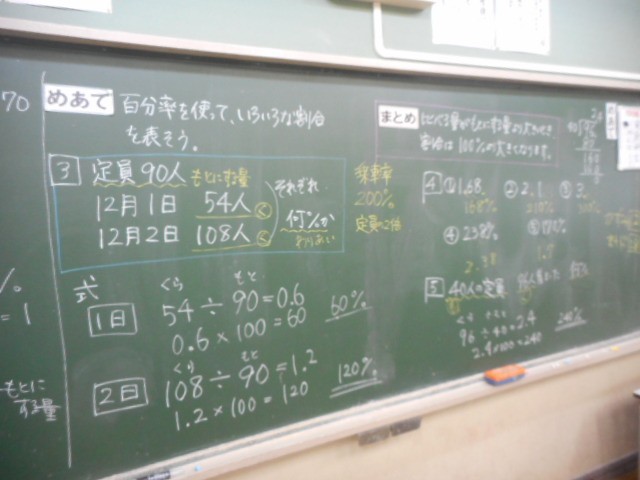 70
% 
= 1
もとに
する量
めあて 百分率を使って、いろいろな割合
を表そう。
3 定員90人 もとにする量
12月1日 54人 く
12月2日 108人 く
それぞれ
何%か
わりあい
乗車率
200%
定員の2倍
式
くら もと
1日 54÷90=0.6 60%
0.6×100=60
くら もと
2日 108÷90=1.2 120%
1.2×100=120
まとめ
割合は100%より大きくなります。
4 ①1.68 ②2.1 ③3
168% 210% 300%
④238%
2.38
5 40人の定員
くら もと
96÷40=2.4 240%
2.4×100=240